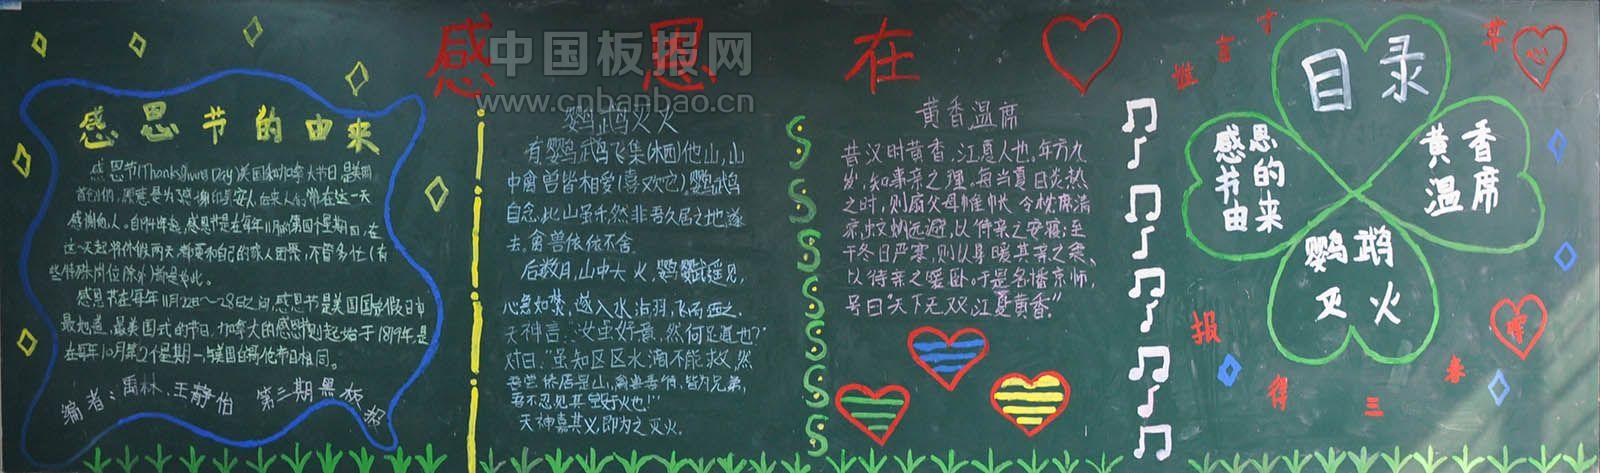 感 恩 在
中国板报网
www.cnbanbao.cn
感恩节的由来
感恩节(Thanksgiving Day)美国和加拿大节日是美国
感谢他人。自1941年起,感恩节是在每年11月的第四个星期四,在
这一天起将休假两天
和自己的家人团聚,不管多忙(有
些特殊岗位除外)都是如此。
感恩节在每年11月22日~28日之间,感恩节是美国国定假日中
最地道、最美国式的节日,加拿大的感恩节则起始于1819年,是
在每年10月第2个星期一与美国的哥伦布日相同。
编者:禹林、王静怡 第二期黑板报
鹦鹉灭火
有鹦鹉飞集(栖)他山,山
中禽兽皆相爱(喜欢它),鹦鹉
自念,此山虽乐,然非吾久居之地,遂
去,禽兽依依不舍。
后数月,山中大火,鹦鹉遥见,
心急如焚,遂入水沾羽,飞而洒之。
天神言:“汝虽好意,然何足道也?”
对曰:“虽知区区水滴不能救,然
吾尝侨居是山,禽兽善待,皆为兄弟,
吾不忍见其毁于火也!”
天神嘉其义,即为之灭火。
黄香温席
昔汉时黄香,江夏人也。年方九
岁,知事亲之理。每当夏日炎热
之时,则扇父母帷帐,令枕席清
凉,蚊蚋远避,以待亲之安寝;至
于冬日严寒,则以身暖其亲之衾,
以待亲之暖卧。于是名播京师,
号曰“天下无双,江夏黄香”。
谁言寸草心
目录
感恩节的由来
黄香温席
鹦鹉灭火
报得三春晖